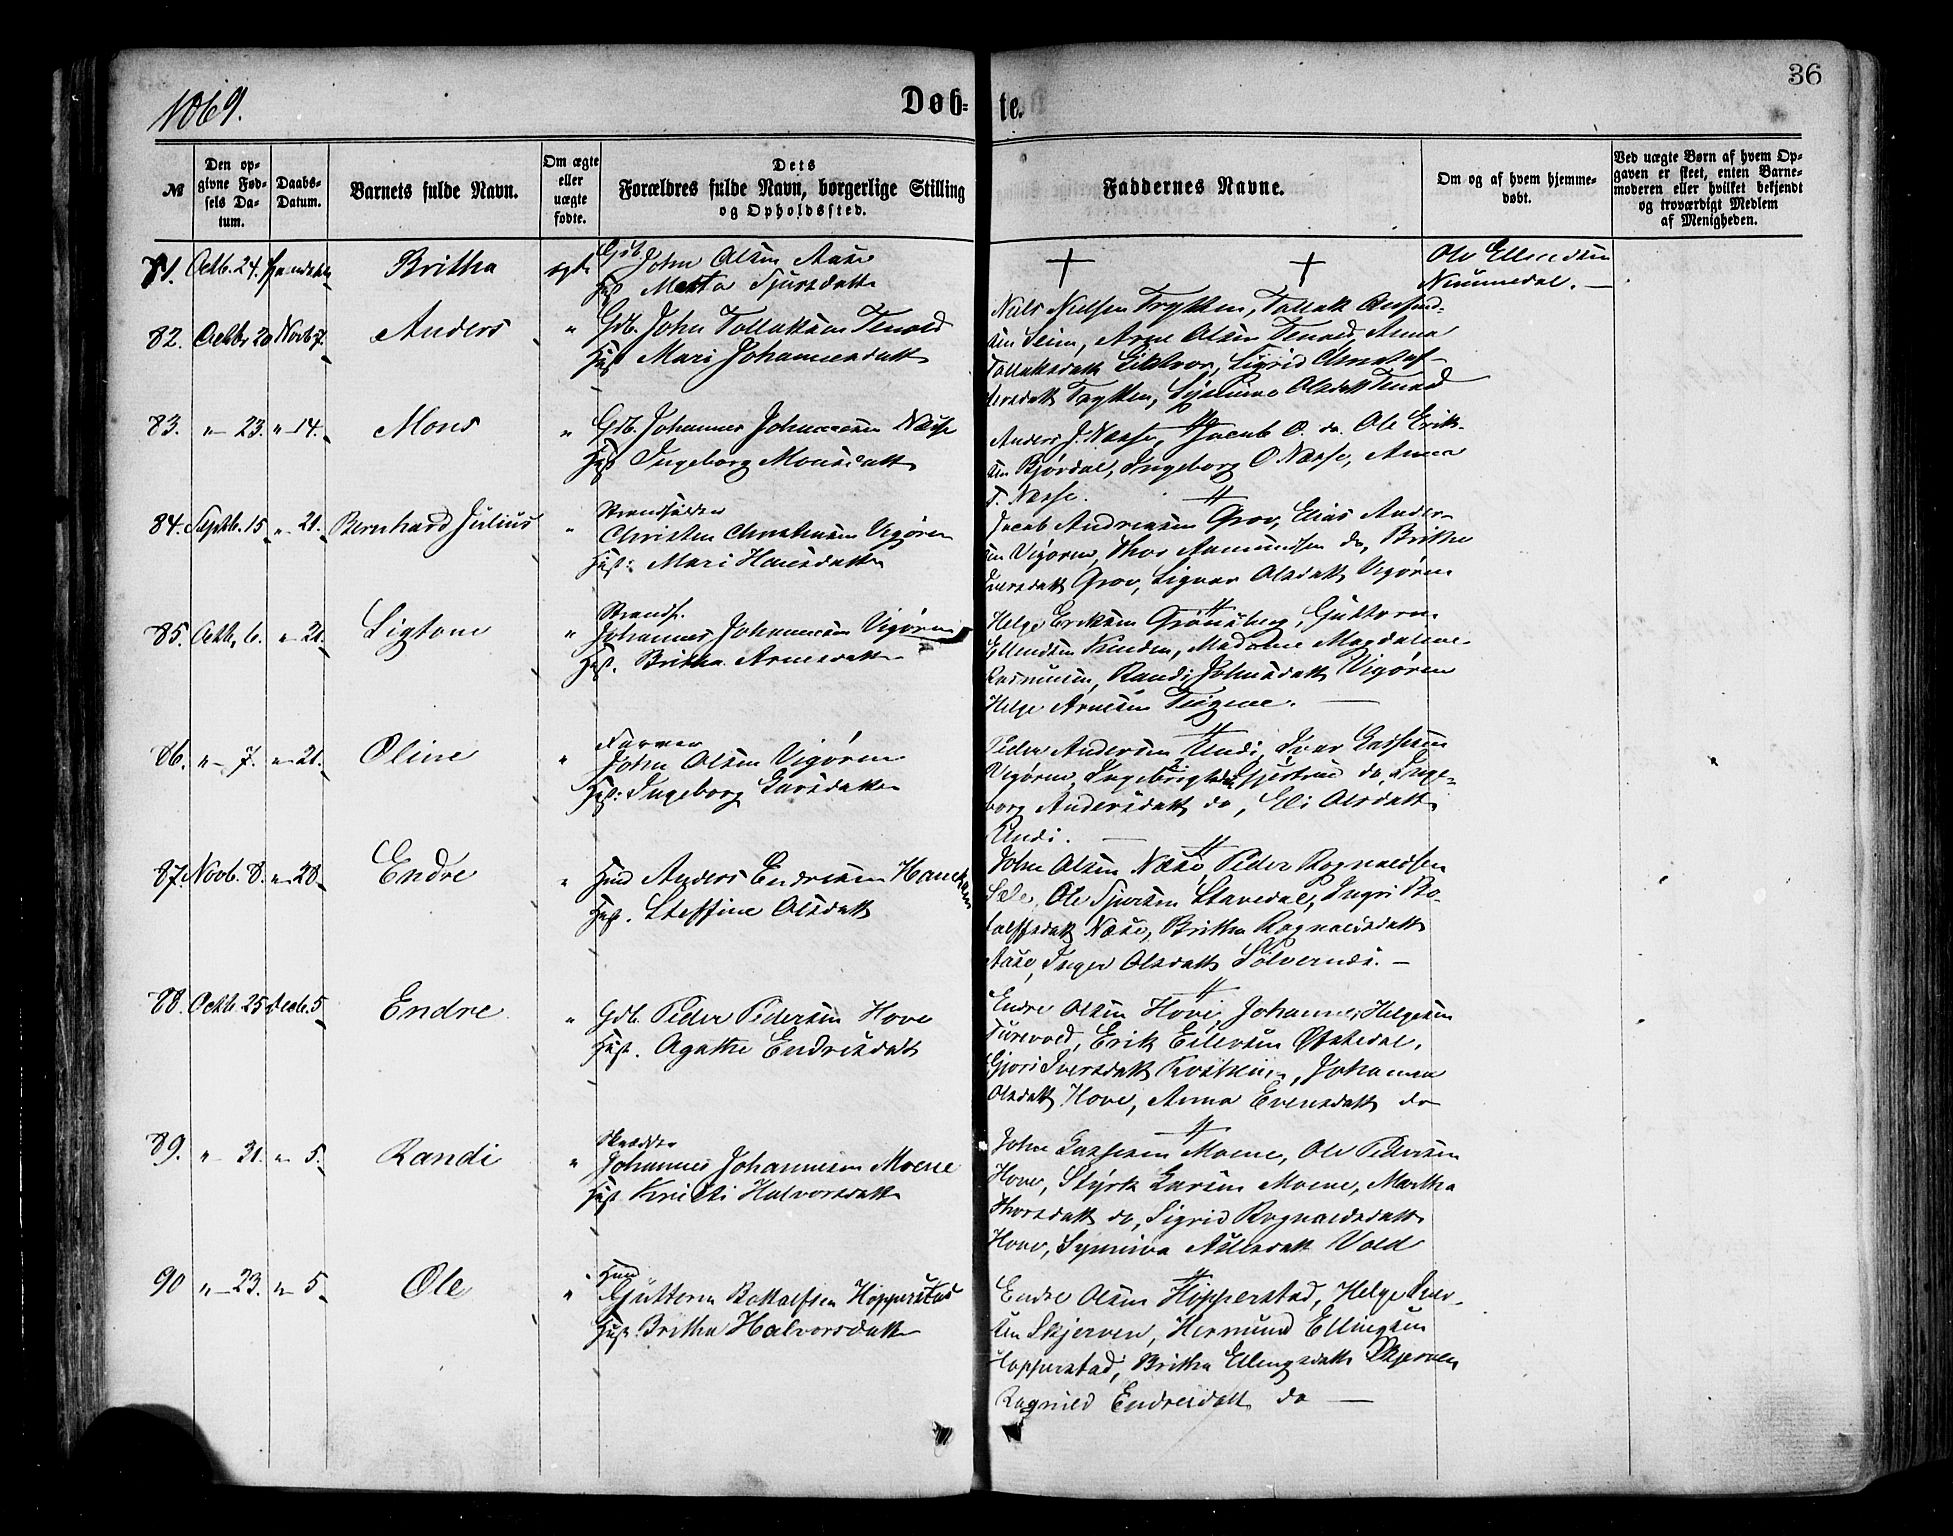 36
1869.
Døb-te.
№
Den opgivne Fødsels Datum.
Daabs-Datum.
Barnets fulde Navn.
Om ægte eller uægte fødte.
Dets Forældres fulde Navn, borgerlige Stilling og Opholdssted.
Faddernes Navne.
Om og af hvem hjemmedøbt.
Ved uægte Børn af hvem Opgaven er skeet, enten Barnemoderen eller hvilket bekjendt og troværdigt Medlem af Menigheden.
81. Octb. 24. Britha ægte Gdb. John Olsen Aase
Hus. Metta Sjursdatter
Ole Ellendsen
Nummedal. —
82. Octbr 20 Novb 7. Anders " Gdb. John Tollaksen Tenold
Hus. Mari Johannesdatt
Niels Nielsen Trytten, Tollak
sen Seim, Arne Olsen Tenold, Anna
Tollaksdatt Sigrid
Trytten, Olsdatt Tenold
83. " 23. " 14. Mons " Gdb. Johannes Johannesen Næsse
Hus Ingeborg Monsdatt
Anders J. Næsse, Jacob O. do. Ole Erik-
sen Bjørdal, Ingeborg O Næsse, Anna
T. Næsse.
84. Septb. 15 " 21. Bernhard Julius " Strandsidder
Christen Christensen Vigøren
Hus: Mari Hansdatter
Jacob Andreasen Grov, Elias Ander-
sen Vigøren, Thor Aamundsen do, Britha
Iversdatt Grov, Signe Olsdatt Vigøren
85. Octb. 6. " 21. Sigtone " Strands.
Johannes Johannesen Vigøren
Hus. Britha Arnesdatter
Helge Eriksen Grønsberg, Guttorm
Ellendsen Madame Magdalene
Rasmusen, Randi Johnsdatt Vigøren
Helge Arnesen
86. " 7. " 21. Oline " Farver
John Olsen Vigøren
Hus: Ingeborg Larsdatter
Peder Andersen Undi, Ivar Lassesen
Vigøren, do, Inge-
borg Andersdatt do, Eli Olsdatt
Undi. —
87. Novb. 8. " 28. Endre " Hmd Anders Endresen
Hus. Steffine Olsdatt
John Olsen Næse, Peder Rognaldsen
Sæle, Ole Sjursen Stavedal, Ingri Bo-
talfsdatt Næse, Britha Rognaldsdatt
Aase, Inger Olsdatt —
88. Octb. 25 Decb. 5 Endre " Gdb. Peder Pedersen Hove
Hus. Agathe Endresdatt
Endre Olsen Hove, Johannes Helgesen
Turevold, Erik
Iversdatt Johanna
Olsdatt Hove, Anna Evensdatt do
89. " 31. " 5. Randi " Skrædder
Johannes Johannesen Moene
Hus. Kristi Halvorsdatter
John Lassesen Moene, Ole Pedersen
Hove, Styrk Larsen Moene, Martha
Thorsdatt do, Sigrid Rognaldsdatt
Hove, Synneva Vold
90 " 23. " 5 Ole " Hmd
Guttorm Bottolfsen Hopperstad
Hus. Britha Halvorsdatter
Endre Olsen Hopperstad, Helge
sen Skjerven, Hermund Ellingsen
Hopperstad, Britha Ellingsdatt Skjerven
Ragnild Endresdatt do —